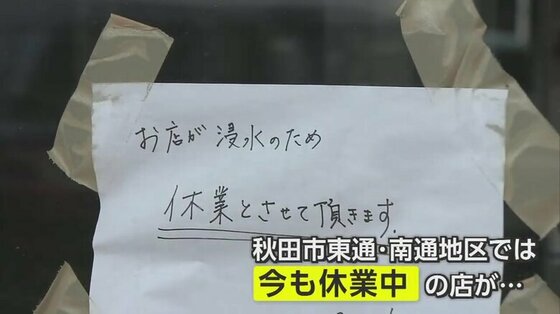 お店が浸水のため
休業とさせて頂きます.
秋田市東通・南通地区では
今も休業中の店が…